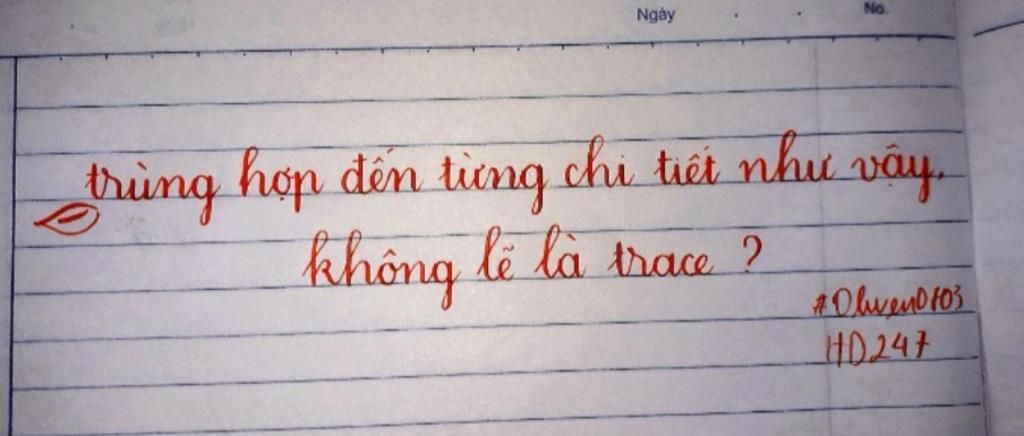 Ngày . . No.
trùng hợp đến từng chi tiết như vậy.
không lẽ là trace ?
#Olwen0103
HD247